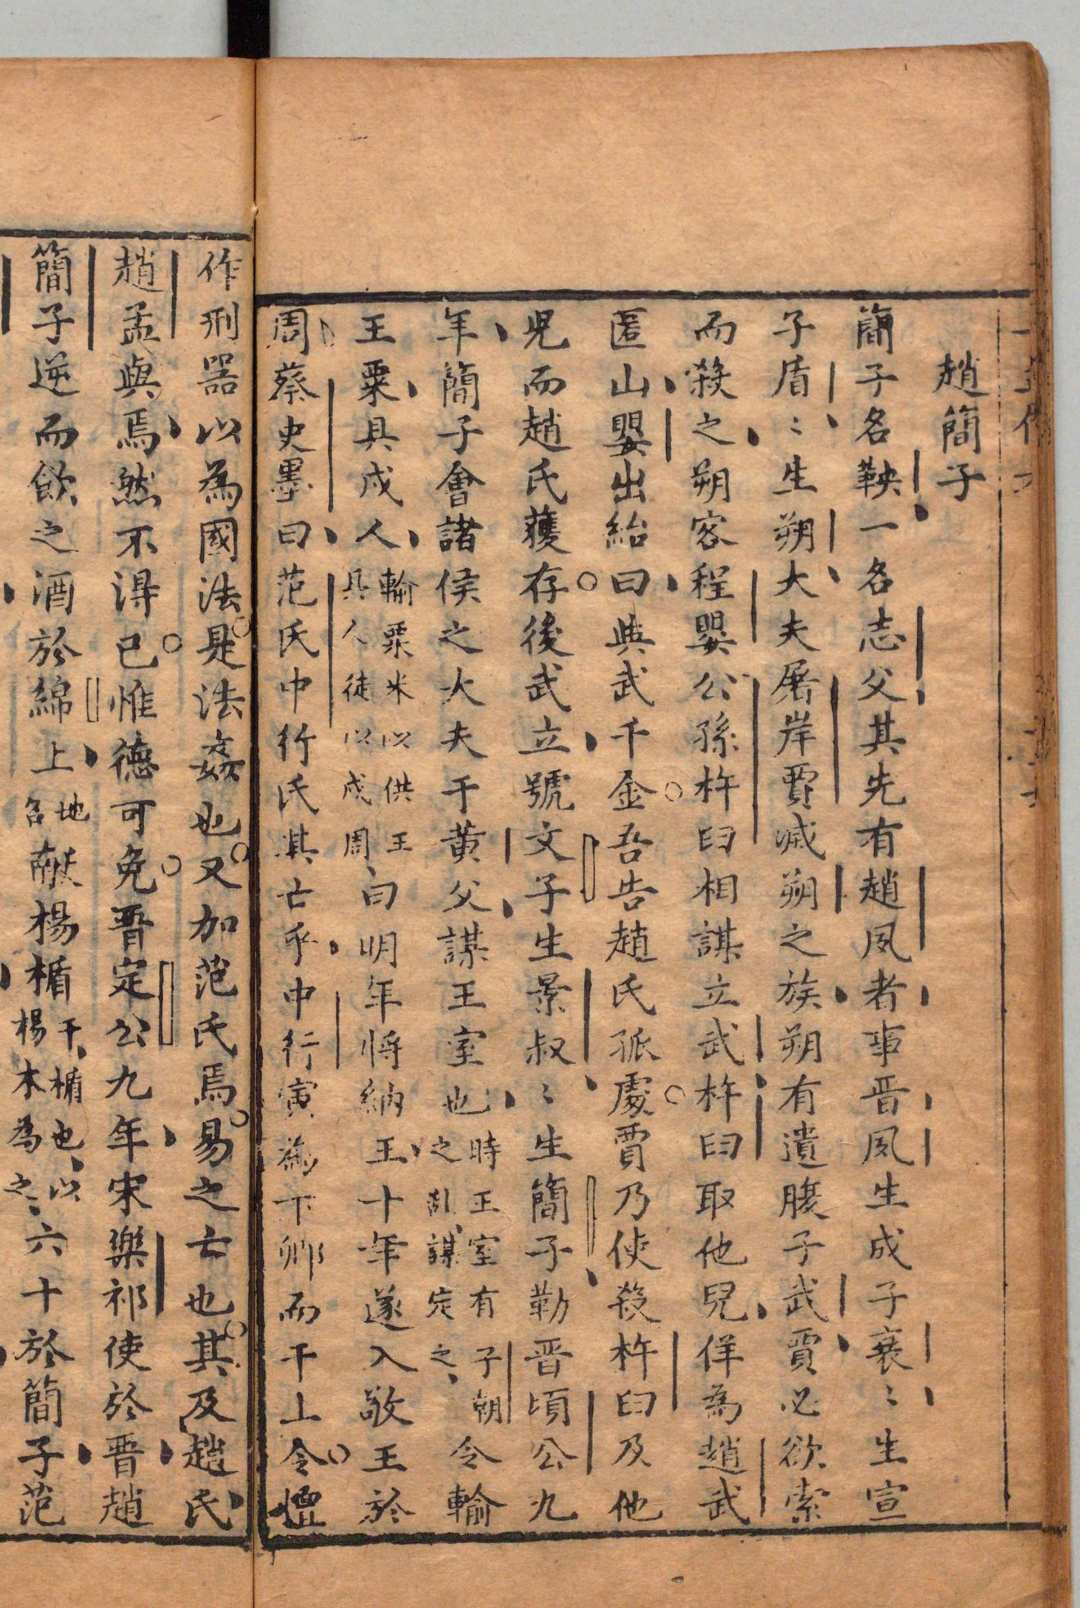 趙簡子
簡子名鞅一名志父其先有趙夙者事晋夙生成子衰〻生宣
子盾〻生朔大夫屠岸賈滅朔之族朔有遺腹子武賈必欲索
而殺之朔客程嬰公孫杵臼相謀立武杵臼取他児佯為趙武
匿山嬰出紿曰與武千金吾告趙氏孤處賈乃使殺杵臼及他
児而趙氏獲存後武立號文子生景叔〻生簡子勒晋頃公九
年簡子會諸侯之大夫于黄父謀王室也時王室有子朝之乱謀定之令輸
王粟具戍人輸粟米以供王具人徒以戍周曰明年将納王十年遂入敬王於
周蔡史墨曰范氏中行氏其亡乎中行寅為下卿而干上令擅
作刑噐以為國法是法姦也又加范氏焉易之亡也其及趙氏
趙孟與焉然不淂已惟德可免晋定公九年宋樂祁使於晋趙
簡子逆而飲之酒於綿上地名献楊楯干楯也以楊木為之六十於簡子范